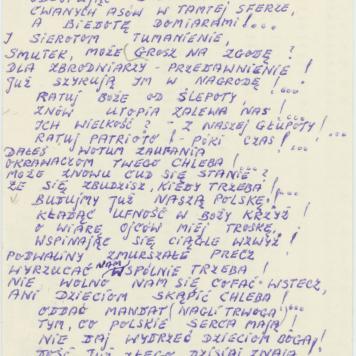 CWANYCH ASÓW W TAMTEJ SFERZE,
A BIEDOTĘ DOMIARAMI!...
I SIEROTOM TUMANIENIE,
SMUTEK, MOŻE GROSZ NA ZGODĘ?
DLA ZBRODNIARZY - PRZEDAWNIENIE!
JUŻ SZYKUJĄ IM W NAGRODĘ!...
RATUJ BOŻE OD ŚLEPOTY,
ZNÓW UTOPIA ZALEWA NAS!...
ICH WIELKOŚĆ? - Z NASZEJ GŁUPOTY!
RATUJ PATRIOTO! - PÓKI CZAS!...
DAŁEŚ WOTUM ZAUFANIA
OKRAWACZOM TWEGO CHLEBA!...
MOŻE ZNOWU CUD SIĘ STANIE?
ŻE SIĘ ZBUDZISZ, KIEDY TRZEBA!...
BUDUJMY JUŻ NASZĄ POLSKĘ,
KŁADĄC UFNOŚĆ W BOŻY KRZYŻ!
O WIARĘ OJCÓW MIEJ TROSKĘ,
WSPINAJĄC SIĘ CIĄGLE WZWYŻ!
PODWALINY ZMURSZAŁE PRECZ
WYRZUCAĆ NAM WSPÓLNIE TRZEBA!
NIE WOLNO NAM SIĘ COFAĆ WSTECZ,
ANI DZIECIOM SKĄPIĆ CHLEBA!
ODDAĆ MANDAT (NAGLI TRWOGA!)
TYM, CO POLSKIE SERCA MAJĄ!
NIE DAJ WYDRZEĆ DZIECIOM BOGA!
JUŻ ZŁEGO DZISIAJ ZNAJĄ